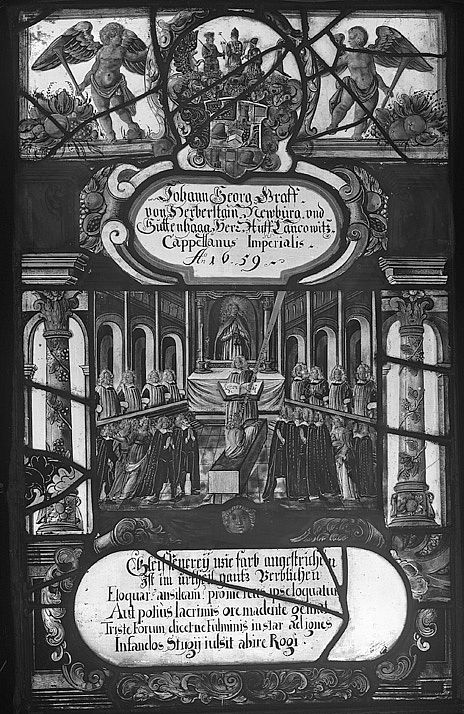 Johann Georg Graff
von Herberstain, Newburg, vnd
Guttenhaag, Herr Auff Lancowitz,
Cappellanus Imperialis.
A⁰ 1659.
wie farb angestrichen
Ist im urtheil gantz Verblichen
Eloquar, an siliam: prome reus ipse loquatur
An potius lacrimis ore madente gemat
Triste Forum, dicetne Fulminis instar ad ignes
Infandos Stygij iussit abire Rogi.